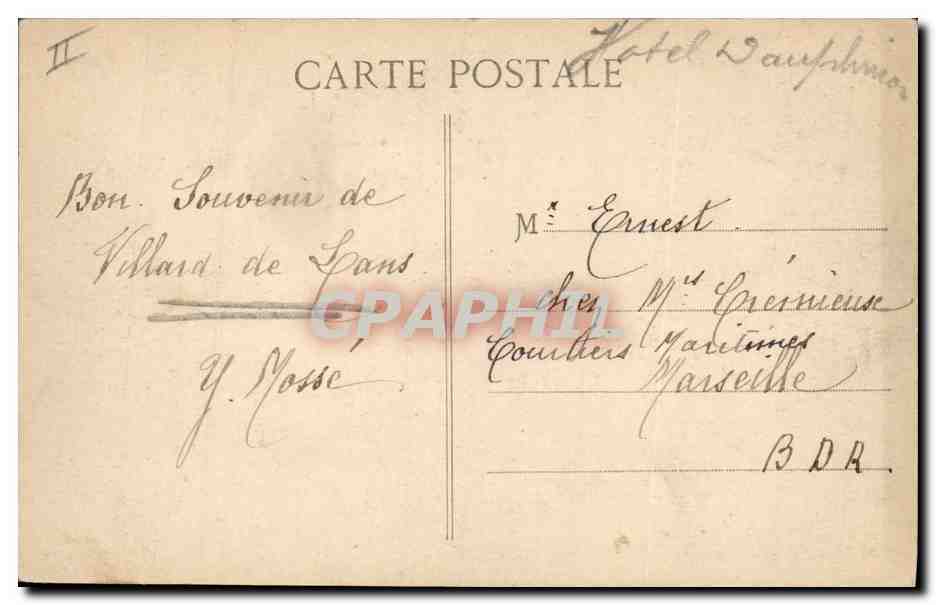 II
Hotel Dauphinon
CARTE POSTALE
Bon. Souvenir de
Villard de Lans.
Y. Mossé
Mr Ernest.
chez Mrs Crémieuse
Courtiers Maritimes
Marseille
B D R.
CPAPHIL